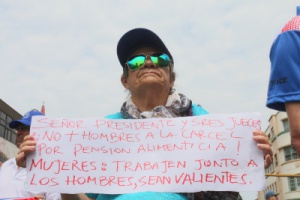 SEÑOR PRESIDENTE Y SRES JUECES
¡NO + HOMBRES A LA CARCEL
POR PENSION ALIMENTICIA!
MUJERES: TRABAJEN JUNTO A
LOS HOMBRES, SEAN VALIENTES.